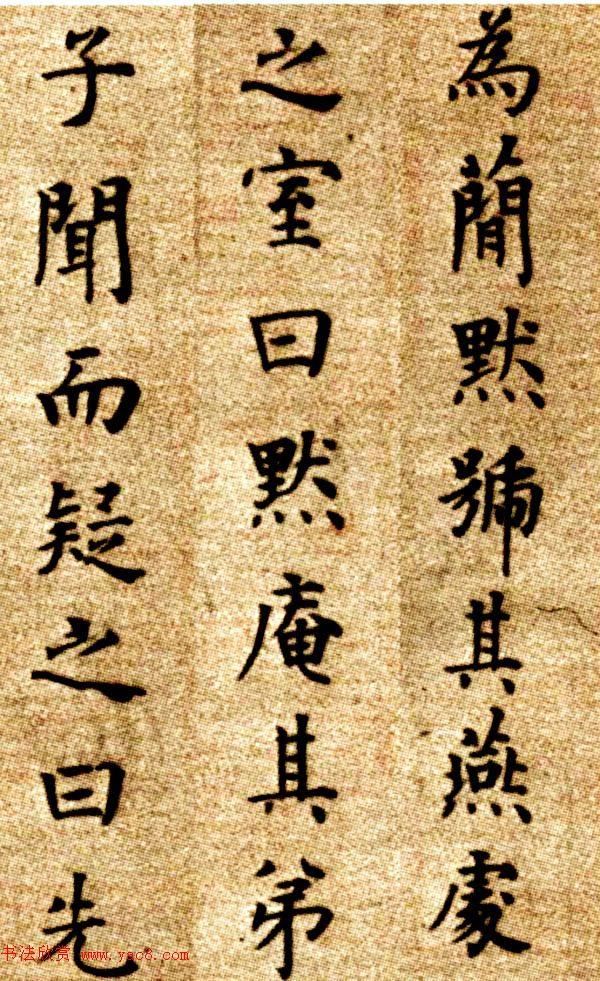 為簡默號其燕處
之室曰默庵其弟
子聞而疑之曰先
书法欣赏 www.yac8.com